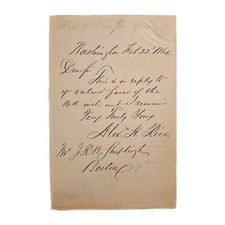 Washington Feb 22 1864
Dear Sir
This is in reply to
yr valued favor of the
16th inst. and I remain
Very Truly Yours
Alex. H. Rice
Mr J.R.P. Shapleigh
Boston